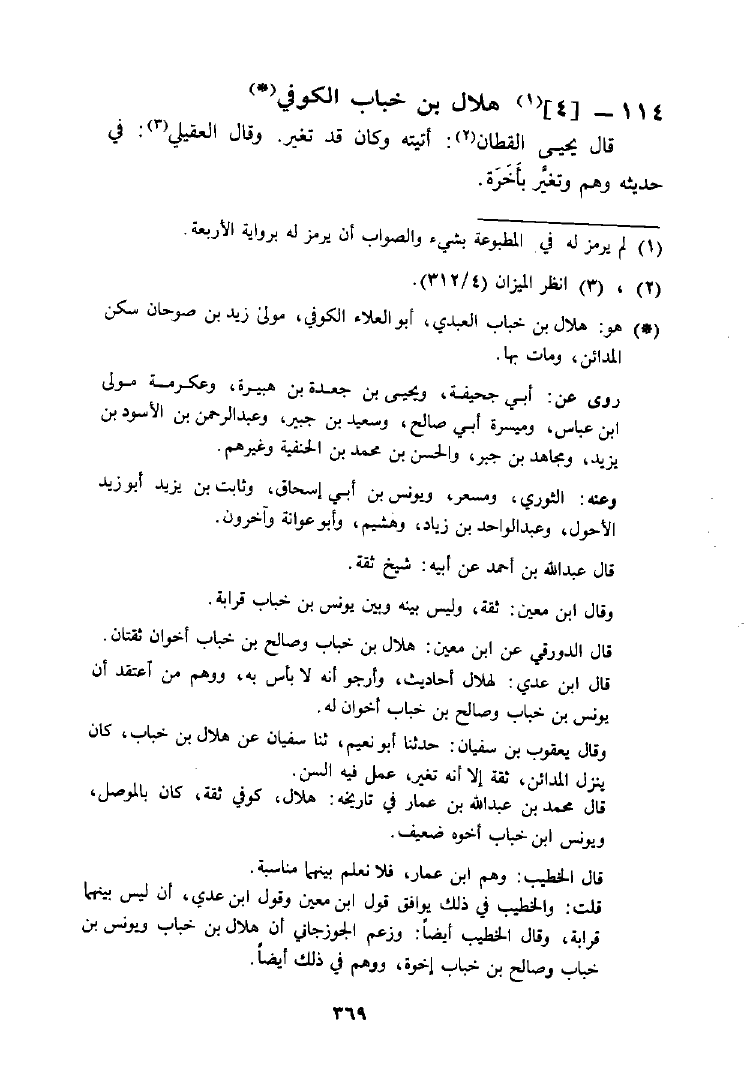 ١١٤ – [٤](١) هلال بن خباب الكوفي(*)
قال يحيى القطان(٢): أتيته وكان قد تغير. وقال العقيلي(٣): في
حديثه وهم وتغيَّر بأَخَرَة.
(١) لم يرمز له في المطبوعة بشيء والصواب أن يرمز له برواية الأربعة.
(٢) ، (٣) انظر الميزان (٣١٢/٤).
(*) هو: هلال بن خباب العبدي، أبو العلاء الكوفي، مولىٰ زيد بن صوحان سكن
المدائن، ومات بها.
روى عن: أبي جحيفة، ويحيى بن جعدة بن هبيرة، وعكرمة مولى
ابن عباس، وميسرة أبي صالح، وسعيد بن جبير، وعبدالرحمن بن الأسود بن
يزيد، ومجاهد بن جبر، والحسن بن محمد بن الحنفية وغيرهم.
وعنه: الثوري، ومسعر، ويونس بن أبي إسحاق، وثابت بن يزيد أبو زيد
الأحول، وعبدالواحد بن زياد، وهشيم، وأبو عوانة وآخرون.
قال عبدالله بن أحمد عن أبيه: شيخ ثقة.
وقال ابن معين: ثقة، وليس بينه وبين يونس بن خباب قرابة.
قال الدورقي عن ابن معين: هلال بن خباب وصالح بن خباب أخوان ثقتان.
قال ابن عدي: لهلال أحاديث، وأرجو أنه لا بأس به، ووهم من آعتقد أن
يونس بن خباب وصالح بن خباب أخوان له.
وقال يعقوب بن سفيان: حدثنا أبو نعيم، ثنا سفيان عن هلال بن خباب، كان
ينزل المدائن، ثقة إلا أنه تغير، عمل فيه السن.
قال محمد بن عبدالله بن عمار في تاريخه: هلال، كوفي ثقة، كان بالموصل،
ويونس ابن خباب أخوه ضعيف.
قال الخطيب: وهم ابن عمار، فلا نعلم بينهما مناسبة.
قلت: والخطيب في ذلك يوافق قول ابن معين وقول ابن عدي، أن ليس بينهما
قرابة، وقال الخطيب أيضاً: وزعم الجوزجاني أن هلال بن خباب ويونس بن
خباب وصالح بن خباب إخوة، ووهم في ذلك أيضاً.
٣٦٩